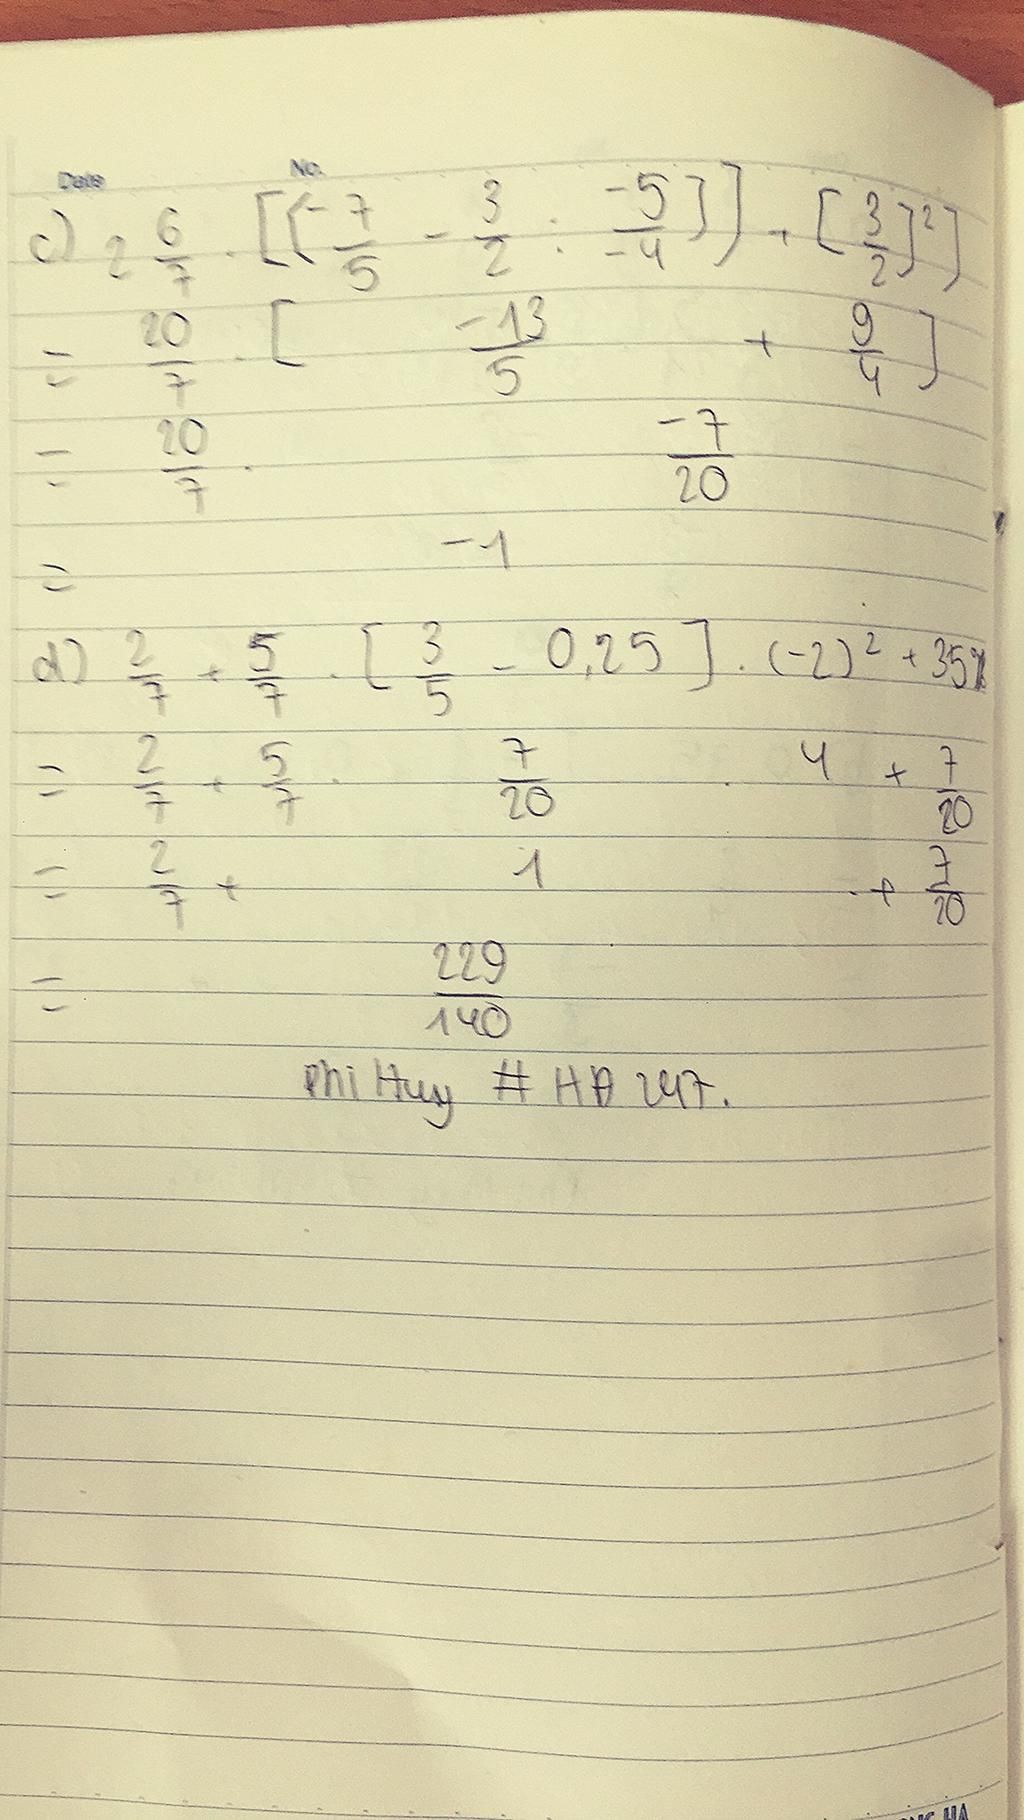 Date No.
c) 2 6/7 . [(-7/5 - 3/2 : -5/-4)] + [3/2]²]
= 20/7 . [ -13/5 + 9/4 ]
= 20/7 . -7/20
= -1
d) 2/7 + 5/7 . [ 3/5 - 0,25 ] . (-2)² + 35%
= 2/7 + 5/7 . 7/20 . 4 + 7/20
= 2/7 + 1 + 7/20
= 229/140
Phi Huy # HD 247.